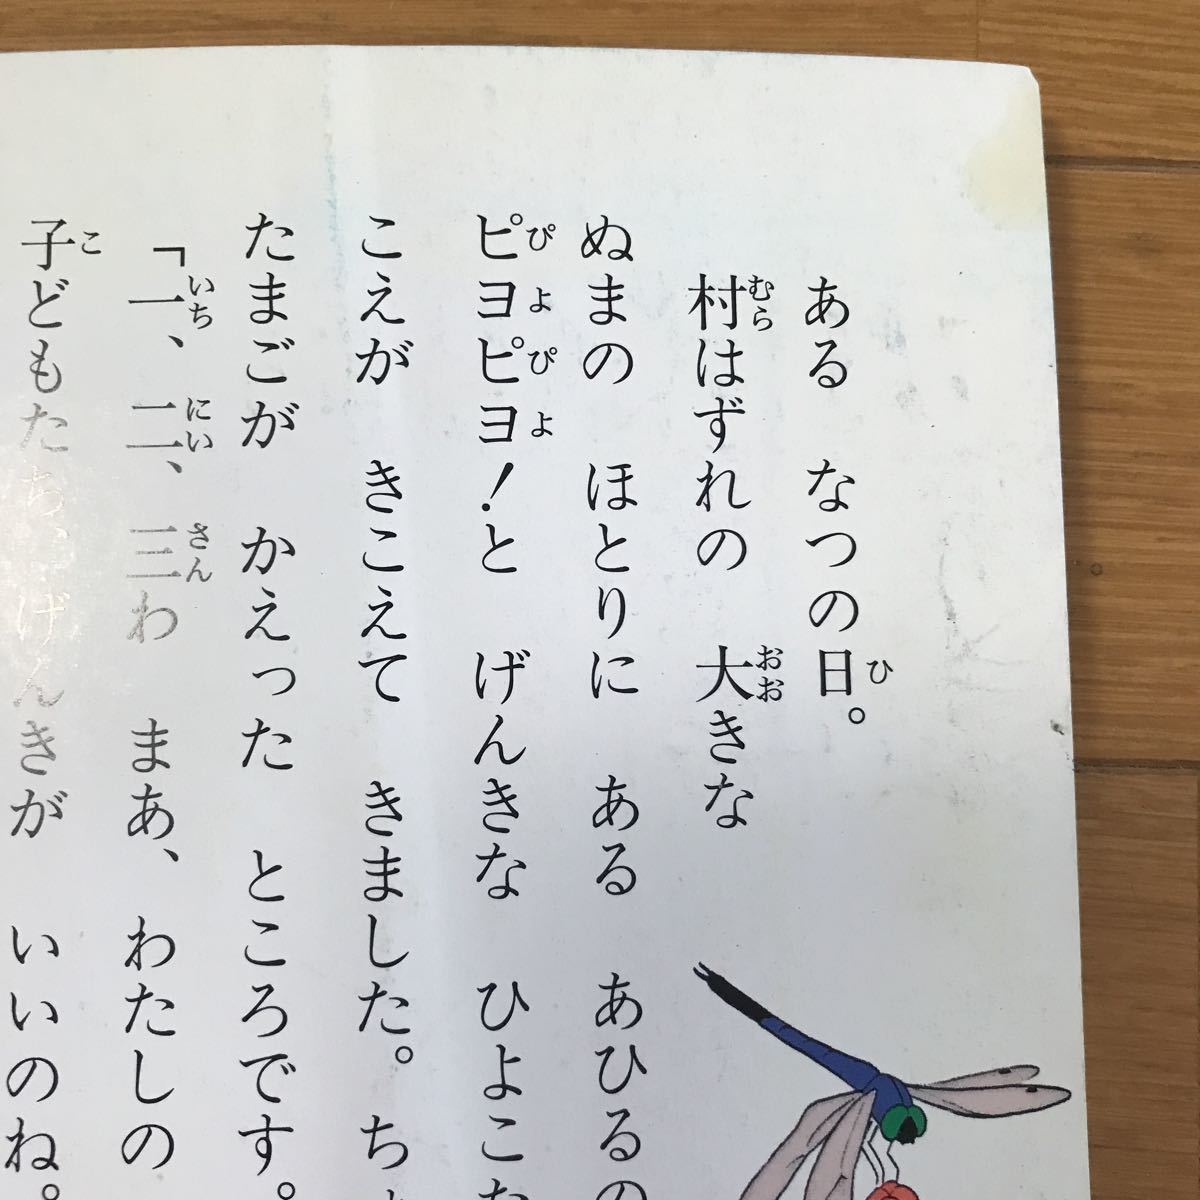 ある なつの日。
村はずれの 大きな
ぬまの ほとりに ある あひるの
ピヨピヨ!と げんきな ひよこた
こえが きこえて きました。 ち
たまごが かえった ところです。
「一、二、三わ まあ、わたしの
子どもたち、げんきが いいのね。
ひ
むら
おお
ぴよぴよ
いち
にい
さん
こ